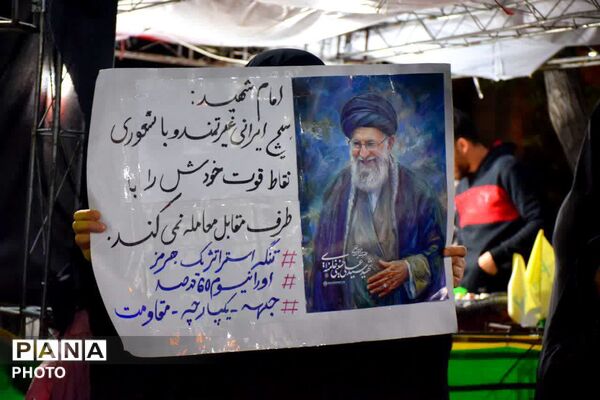 امام شهید:
هیچ ایرانی غیرتمند و با شعوری
نقاط قوت خودش را با
طرف مقابل معامله نمی کند.
# تنگه استراتژیک هرمز
# اورانیوم ۶۵ درصد
# جبهه - یکپارچه - مقاومت
PANA
PHOTO